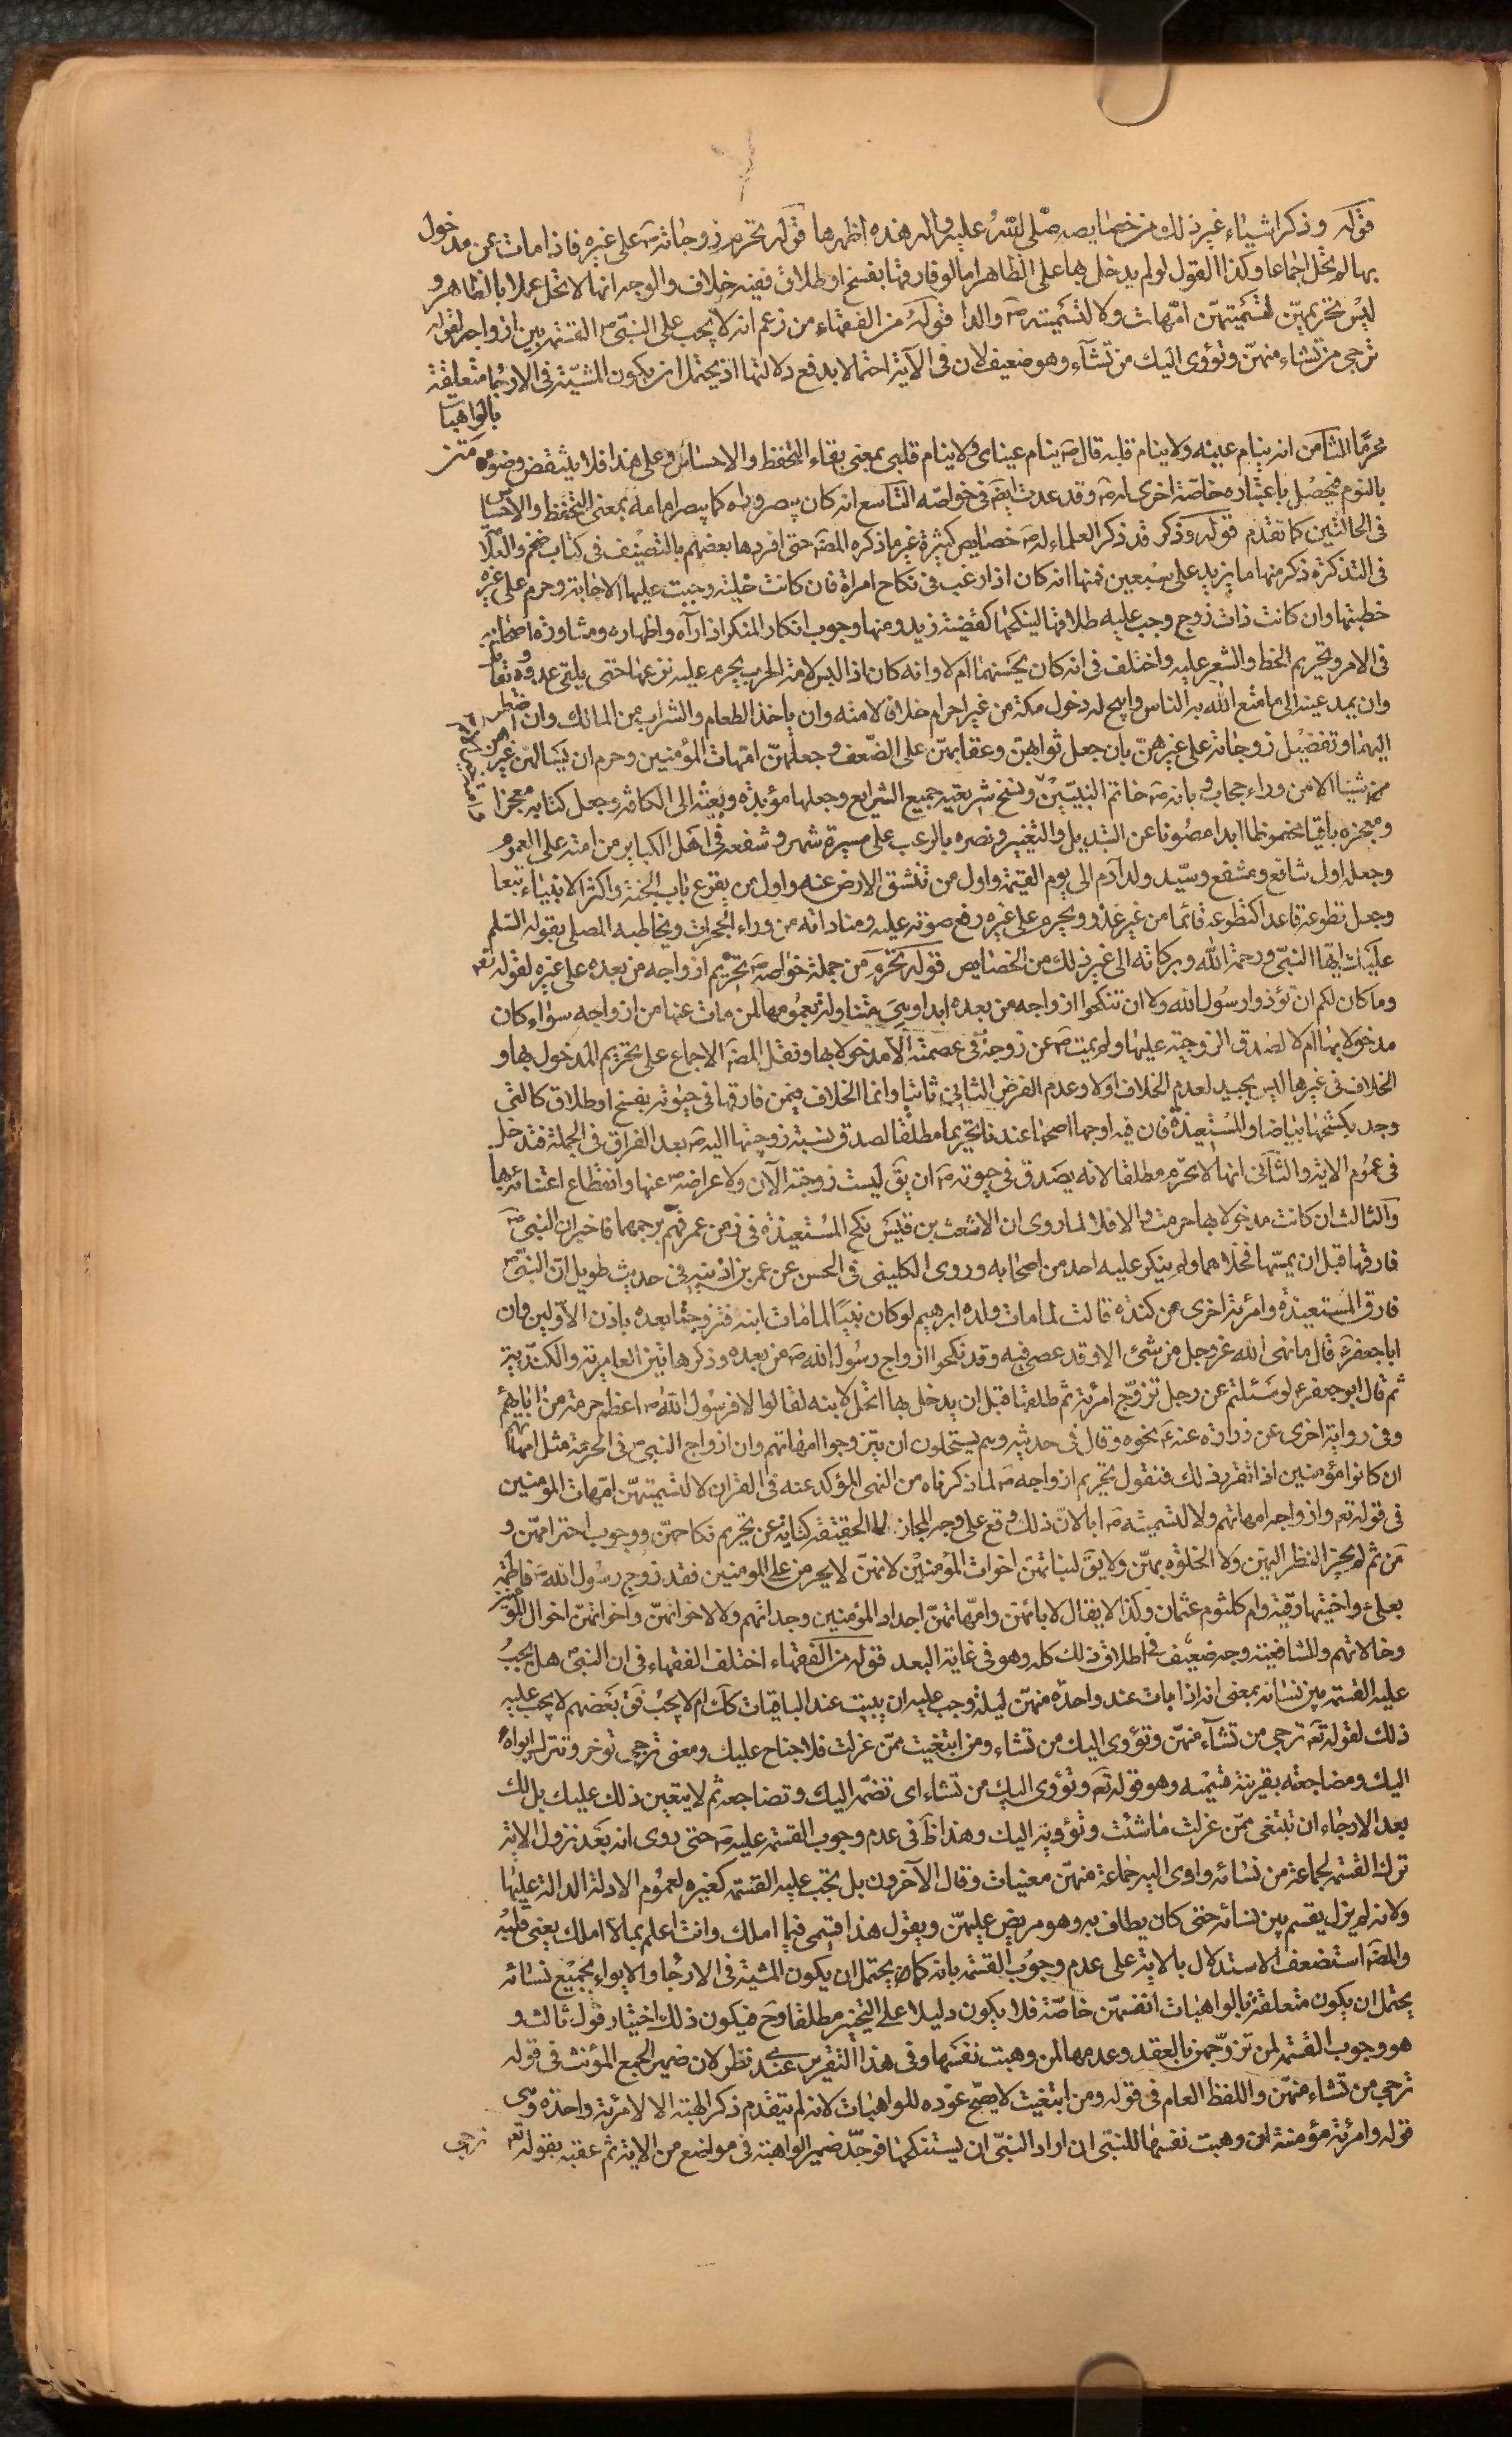 قوله وذكر اشياء غير ذلك من خصايصه صلى الله عليه واله هذه اظهرها قوله تحرم زوجاته ص على غيره فاذا مات عن مدخول
بها لم تحل اجماعا وكذا القول لو لم يدخل بها على الظاهر اما لو فارقها بفسخ او طلاق ففيه خلاف والوجه انها لا تحل عملا بالظاهر و
ليس تحريمهن لتسميتهن امهات ولا لتسميته ص والدا قوله من الفقهاء من زعم انه لا يجب على النبى ص القسمة بين ازواجه لقوله
ترجى من تشاء منهن وتؤوى اليك من تشآء وهو ضعيف لان فى الآية احتمالا يدفع دلالتها اذ يحتمل ان يكون المشية فى الارجاء متعلقة
بالواهبات
محرما الثامن انه ينام عينه ولا ينام قلبه قال ص ينام عيناى ولا ينام قلبى بمعنى بقاء التحفظ والاحساس وعلى هذا فلا ينتقض وضوءه متنز
بالنوم فيحصل باعتباره خاصة اخرى له ص وقد عدت ايض فى خواصه التاسع انه كان يبصر وراه كما يبصر امامه بمعنى التحفظ والاحساس
فى الحالتين كما تقدم قوله وذكر قد ذكر العلماء له ص خصايص كثيرة غير ما ذكره المص حتى افردها بعضهم بالتصنيف فى كتاب ضخم والعلامة
فى التذكرة ذكر منها ما يزيد على سبعين فمنها انه كان اذا رغب فى نكاح امراة فان كانت خلية وجبت عليها الاجابة وحرم على غيره
خطبتها وان كانت ذات زوج وجب عليه طلاقها لينكحها كقضية زيد ومنها وجوب انكار المنكر اذا رآه واظهاره ومشاورة اصحابه
فى الامر وتحريم الخط والشعر عليه واختلف فى انه كان يحسنهما ام لا وانه كان اذا لبس لامة الحرب يحرم عليه نزعها حتى يلقى عدوه ويقاتل
وان يمد عينه الى ما متع الله به الناس وابيح له دخول مكة من غير احرام خلافا لامته وان ياخذ الطعام والشراب من المالك وان اضطر
اليهما وتفضيل زوجاته على غيرهن بان جعل ثوابهن وعقابهن على الضعف وجعلهن امهات المؤمنين وحرم ان يسالهن غيرهن
شيئا الا من وراء حجاب وبانه ص خاتم النبيين ونسخ شريعته جميع الشرايع وجعلها مؤبدة وبعثه الى الكافة وجعل كتابه معجزا
ومعجزه باقيا محفوظا ابدا مصونا عن التبديل والتغيير ونصره بالرعب على مسيرة شهر وشفعه فى اهل الكباير من امته على العموم
وجعله اول شافع ومشفع وسيد ولد آدم الى يوم القيمة واول من تنشق الارض عنه واول من يقرع باب الجنة واكثر الانبياء تبعا
وجعل تطوعه قاعدا كتطوعه قائما من غير عذر ويحرم على غيره رفع صوته عليه ومناداته من وراء الحجرات ويخاطبه المصلى بقوله السلم
عليك ايها النبى ورحمة الله وبركاته الى غير ذلك من الخصايص قوله تحرم من جملة خواصه ص تحريم ازواجه من بعده على غيره لقوله تعم
وما كان لكم ان تؤذوا رسول الله ولا ان تنكحوا ازواجه من بعده ابدا وهى متناولة بعمومها لمن مات عنها من ازواجه سواء كان
مدخولا بها ام لا لصدق الزوجية عليهما ولم يمت ص عن زوجة فى عصمته الا مدخولا بها ونقل المص الاجماع على تحريم المدخول بها و
الخلاف فى غيرها ليس بجيد لعدم الخلاف اولا وعدم الفرض الثانى ثانيا وانما الخلاف فيمن فارقها فى حيوته بفسخ او طلاق كالتى
وجد بكشحها بياضا والمستعيذة فان فيه اوجها اصحها عندنا تحريمها مطلقا لصدق نسبة زوجيتها اليه ص بعد الفراق فى الجملة فتدخل
فى عموم الاية والثانى انها لا تحرم مطلقا لانه يصدق فى حيوته ص ان يق ليست زوجته الآن ولاعراضه ص عنها وانقطاع اعتنائه بها
والثالث ان كانت مدخولا بها حرمت والا فلا لما روى ان الاشعث بن قيس نكح المستعيذة فى زمن عمر فهم برجمهما فاخبر ان النبى ص
فارقها قبل ان يمسها فخلاهما ولم ينكر عليه احد من اصحابه وروى الكلينى فى الحسن عن عمر بن اذينه فى حديث طويل ان النبى ص
فارق المستعيذة وامرئة اخرى من كندة قالت لما مات ولده ابرهيم لو كان نبيا لما مات ابنه فتزوجتا بعده باذن الاولين وان
ابا جعفر ع قال ما نهى الله عز وجل من شئ الا وقد عصى فيه وقد نكحوا ازواج رسول الله ص من بعده وذكر هاتين العامرية والكندية
ثم قال ابو جعفر ع لو سئلتم عن رجل تزوج امرئة ثم طلقها قبل ان يدخل بها اتحل لابنه لقالوا لا فرسول الله ص اعظم حرمة من ابايهم
وفى رواية اخرى عن زرارة عنه ع نحوه وقال فى حديثه وهم يستحلون ان يتزوجوا امهاتهم وان ازواج النبى ص فى الحرمة مثل امهاتهم
ان كانوا مؤمنين اذا تقرر ذلك فنقول تحريم ازواجه ص لما ذكرناه من النهى المؤكد عنه فى القران لا لتسميتهن امهات المؤمنين
فى قوله تعم وازواجه امهاتهم ولا لتسميته ص ابا لان ذلك وقع على وجه المجاز لا الحقيقة كناية عن تحريم نكاحهن ووجوب احترامهن و
من ثم لم يجز النظر اليهن ولا الخلوة بهن ولا يق لبناتهن اخوات المؤمنين لانهن لا يحرمن على المومنين فقد زوج رسول الله ص فاطمة
بعلى ع واختيها رقية وام كلثوم عثمان وكذا لا يقال لابائهن وامهاتهن اجداد المؤمنين وجداتهم ولا لاخوانهن واخواتهن اخوال المؤمنين
وخالاتهم وللشافعية وجه ضعيف فى اطلاق ذلك كله وهو فى غاية البعد قوله من الفقهاء اختلف الفقهاء فى ان النبى ص هل يجب
عليه القسمة بين نسائه بمعنى انه اذا بات عند واحدة منهن ليلة وجب عليه ان يبيت عند الباقيات كك ام لا يجب فق بعضهم لا يجب عليه
ذلك لقوله تعم ترجى من تشآء منهن وتؤوى اليك من تشاء ومن ابتغيت ممن عزلت فلا جناح عليك ومعنى ترجى توخر وتترك ايواءه
اليك ومضاجعته بقرينة قسيمه وهو قوله تعم وتؤوى اليك من تشاء اى تضمه اليك وتضاجعه ثم لا يتعين ذلك عليك بل لك
بعد الارجاء ان تبتغى ممن عزلت ما شئت وتؤويه اليك وهذا ظ فى عدم وجوب القسمة عليه ص حتى روى انه بعد نزول الاية
ترك القسمة لجماعة من نسائه واوى اليه جماعة منهن معينات وقال الآخرون بل تجب عليه القسمة كغيره لعموم الادلة الدالة عليها
ولانه لم يزل يقسم بين نسائه حتى كان يطاف به وهو مريض عليهن ويقول هذا قسمى فيما املك وانت اعلم بما لا املك يعنى قلبه
والمص استضعف الاستدلال بالاية على عدم وجوب القسمة بانه كما يحتمل ان يكون المشية فى الارجاء والايواء بجميع نسائه
يحتمل ان يكون متعلقة بالواهبات انفسهن خاصة فلا يكون دليلا على التخيير مطلقا وح فيكون ذلك اختيار قول ثالث و
هو وجوب القسمة لمن تزوجهن بالعقد وعدمها لمن وهبت نفسها وفى هذا التقرير عندى نظر لان ضمير الجمع المؤنث فى قوله
ترجى من تشاء منهن واللفظ العام فى قوله ومن ابتغيت لا يصح عوده للواهبات لانه لم يتقدم ذكر الهبة الا لامرئة واحدة وهى
قوله وامرئة مؤمنة ان وهبت نفسها للنبى ان اراد النبى ان يستنكحها فوحد ضمير الواهبة فى مواضع من الاية ثم عقبه بقوله تعم
ترجى